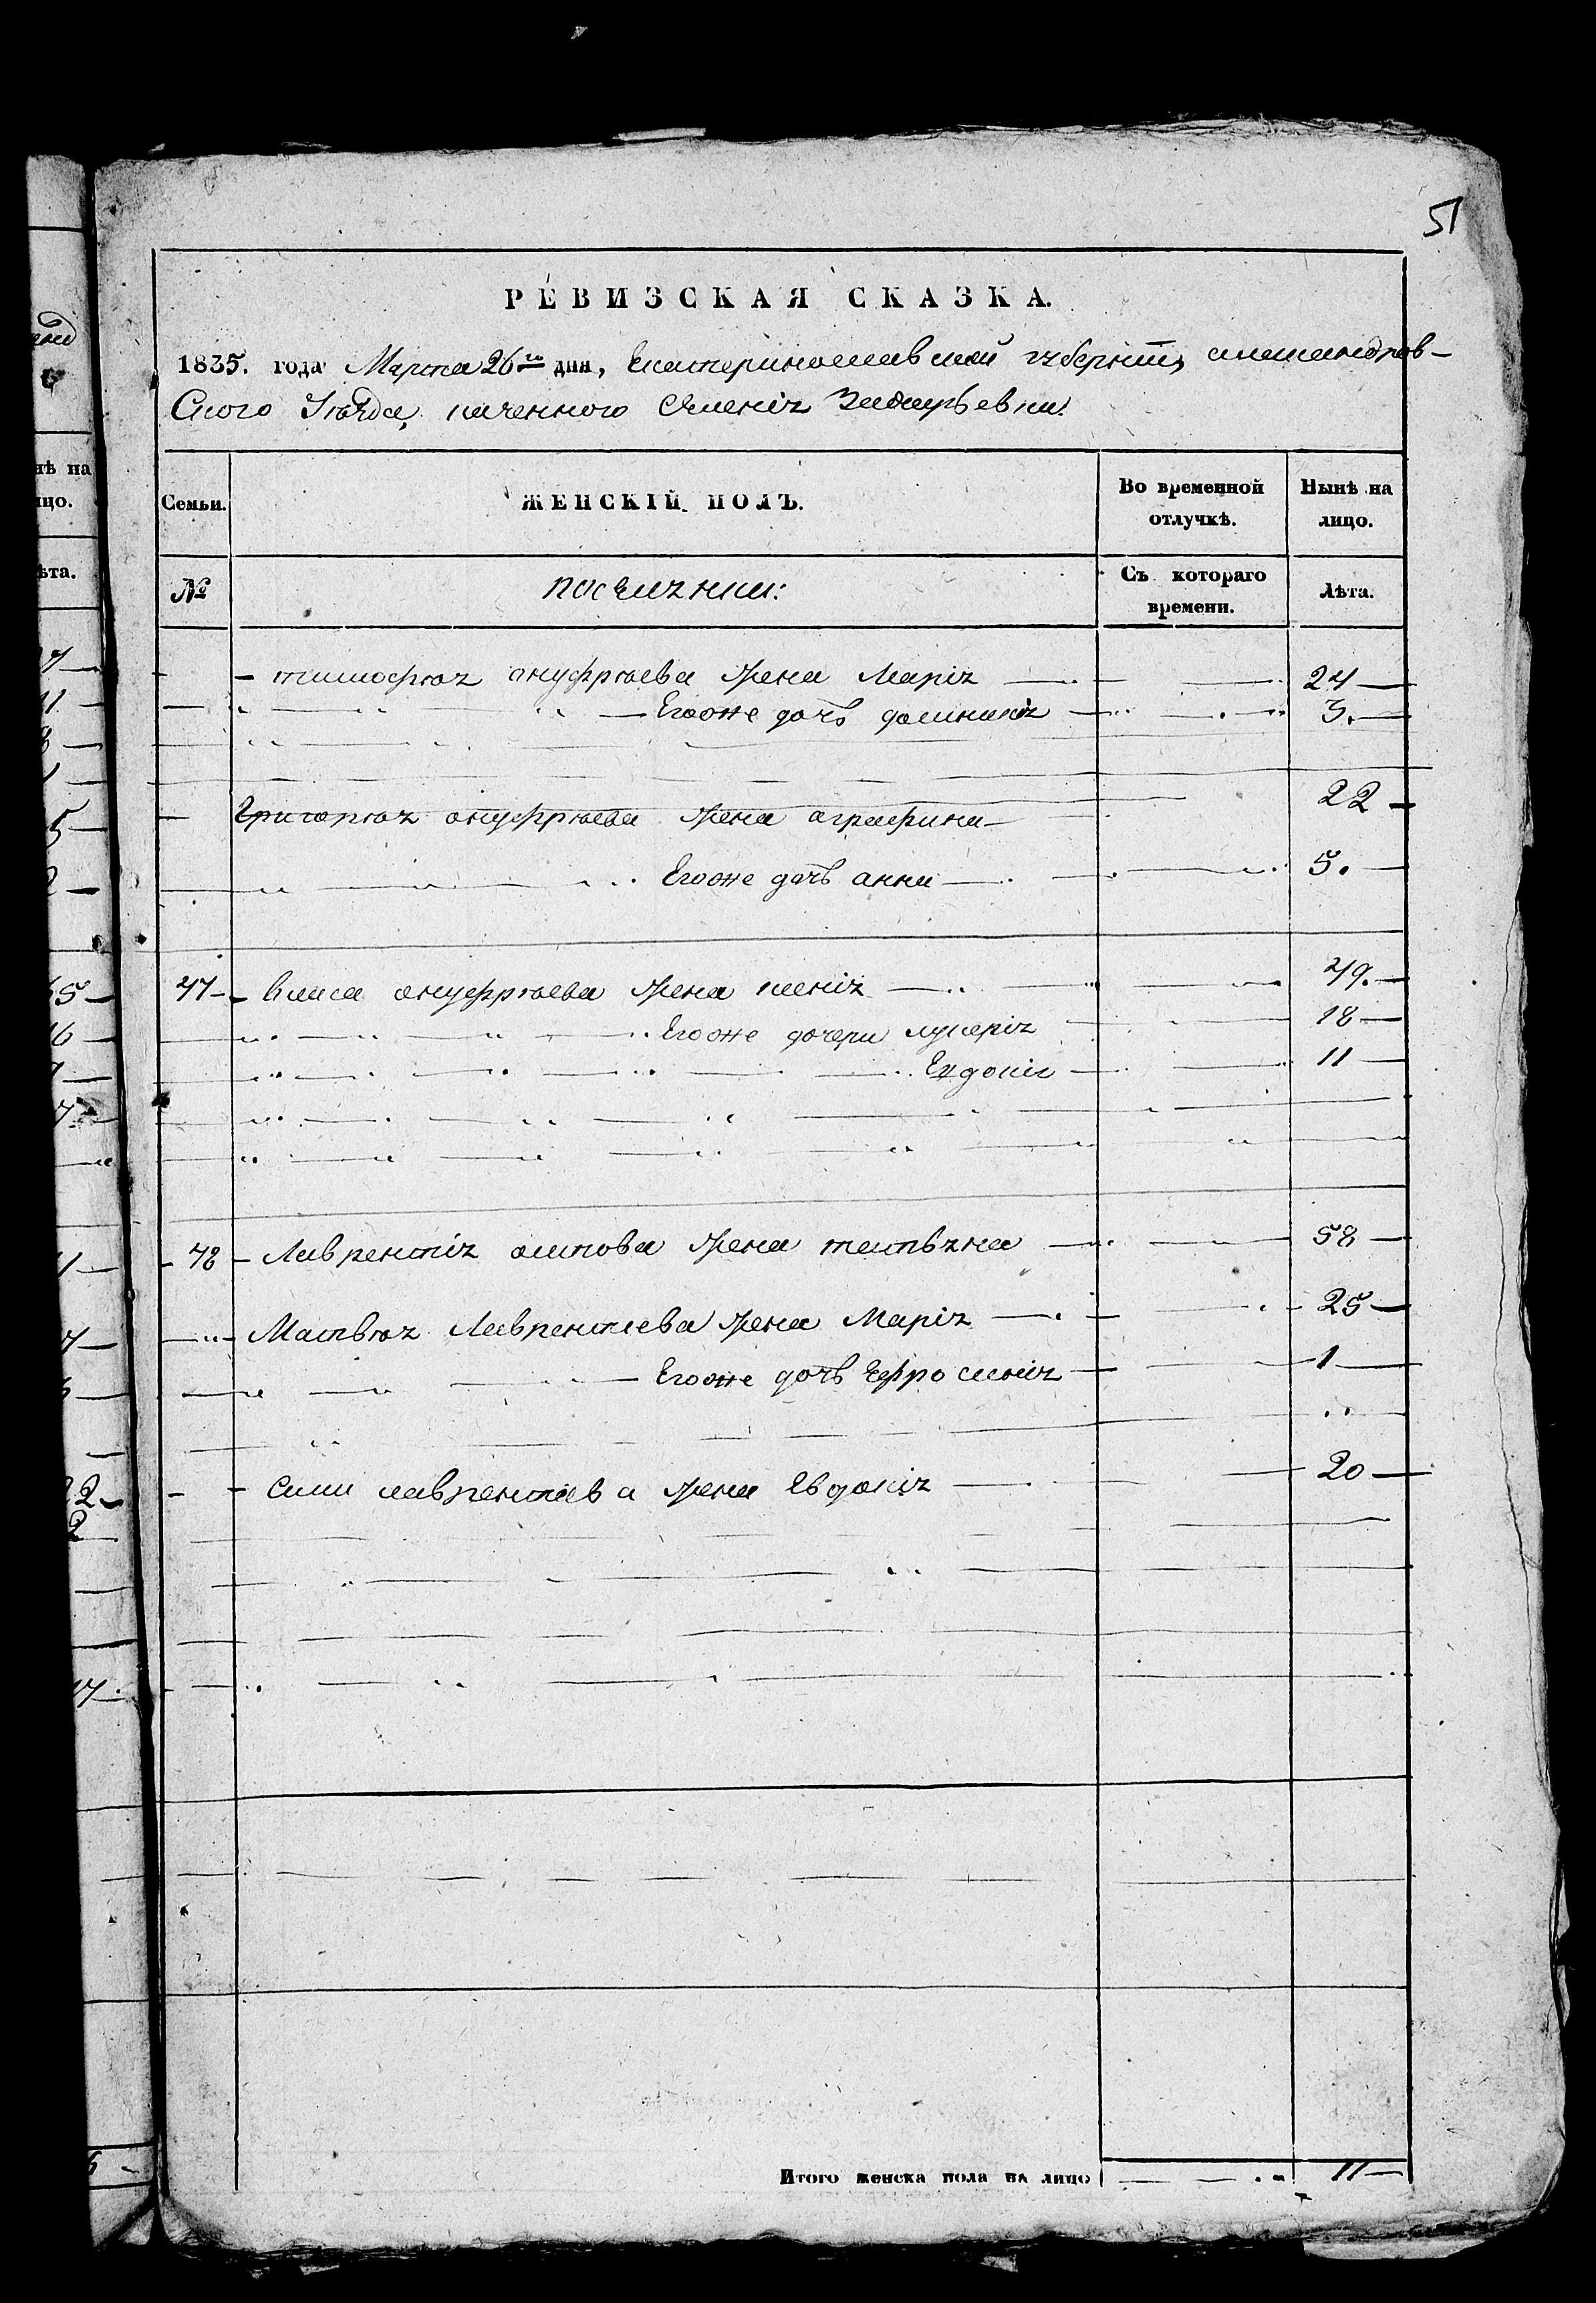 51
РЕВИЗСКАЯ СКАЗКА.
1835. года Марта 26го дня, Екатеринославской губернии, александров-
Ского Уезда, казенного Селения
Семьи. ЖЕНСКІЙ ПОЛЪ. Во временной отлучкѣ. Нынѣ на лицо.
№ поселянки: Съ котораго времени. Лѣта.
тимофея ануфриева жена Марія 24
Егоже дочь домникія 3.
Григория ануфриева жена аграфина 22
Егоже дочь анна 5.
47 власа ануфриева жена ксенія 49.
Егоже дочери лукерія 18
Евдокія 11
48 Лаврентія осипова жена татьяна 58
Матвея Лаврентиева жена Марія 25
Егоже дочь Ефросинія 1
Савы лаврентиева жена Евдокія 20
Итого женска пола на лицо 11
нѣ на
ицо.
ѣта.